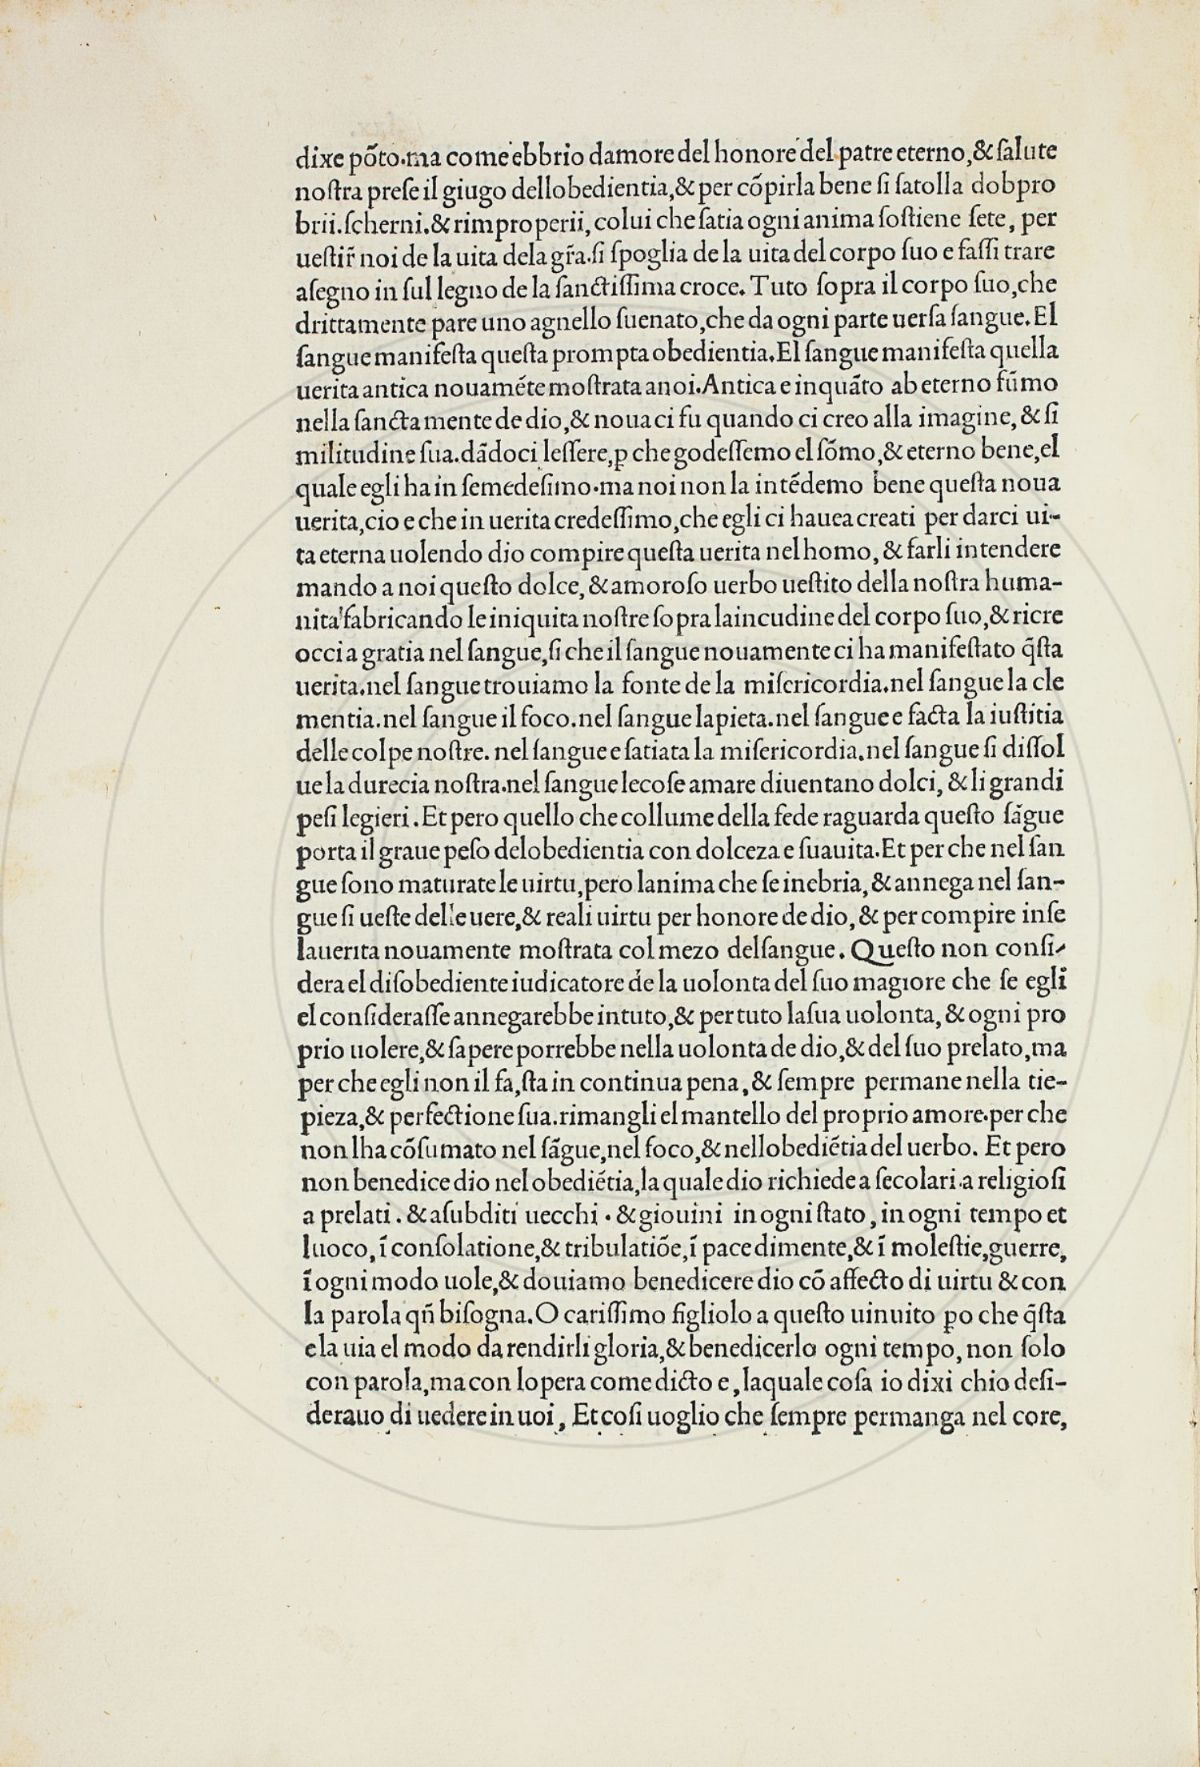 dixe põto.ma come ebbrio damore del honore del patre eterno,& ſalute
noſtra preſe il giugo dellobedientia,& per cõpirla bene ſi ſatolla dobpro
brii.ſcherni.& rimproperii, colui che ſatia ogni anima ſoſtiene ſete, per
ueſtir̃ noi de la uita dela gr̃a.ſi ſpoglia de la uita del corpo ſuo e faſſi trare
aſegno in ſul legno de la ſanctiſſima croce. Tuto ſopra il corpo ſuo,che
drittamente pare uno agnello ſuenato,che da ogni parte uerſa ſangue. El
ſangue manifeſta queſta prompta obedientia. El ſangue manifeſta quella
uerita antica nouamẽte moſtrata anoi. Antica e inquãto ab eterno fũmo
nella ſancta mente de dio,& noua ci fu quando ci creo alla imagine, & ſi
militudine ſua.dãdoci leſſere,ꝑ che godeſſemo el ſõmo,& eterno bene,el
quale egli ha in ſemedeſimo.ma noi non la intẽdemo bene queſta noua
uerita,cio e che in uerita credeſſimo,che egli ci hauea creati per darci ui-
ta eterna uolendo dio compire queſta uerita nel homo, & farli intendere
mando a noi queſto dolce, & amoroſo uerbo ueſtito della noſtra huma-
nita fabricando le iniquita noſtre ſopra laincudine del corpo ſuo,& ricre
occi a gratia nel ſangue,ſi che il ſangue nouamente ci ha manifeſtato q̃ſta
uerita.nel ſangue trouiamo la fonte de la miſericordia.nel ſangue la cle
mentia.nel ſangue il foco.nel ſangue lapieta.nel ſangue e facta la iuſtitia
delle colpe noſtre. nel ſangue e ſatiata la miſericordia.nel ſangue ſi diſſol
ue la durecia noſtra.nel ſangue lecoſe amare diuentano dolci, & li grandi
peſi legieri. Et pero quello che collume della fede raguarda queſto ſãgue
porta il graue peſo delobedientia con dolceza e ſuauita. Et per che nel ſan
gue ſono maturate le uirtu,pero lanima che ſe inebria, & annega nel ſan-
gue ſi ueſte delle uere,& reali uirtu per honore de dio, & per compire inſe
lauerita nouamente moſtrata col mezo delſangue. Queſto non conſi-
dera el diſobediente iudicatore de la uolonta del ſuo magiore che ſe egli
el conſideraſſe annegarebbe intuto,& per tuto laſua uolonta, & ogni pro
prio uolere,& ſapere porrebbe nella uolonta de dio,& del ſuo prelato,ma
per che egli non il fa,ſta in continua pena, & ſempre permane nella tie-
pieza,& perfectione ſua.rimangli el mantello del proprio amore.per che
non lha cõſumato nel ſãgue,nel foco,& nellobediẽtia del uerbo. Et pero
non benedice dio nel obediẽtia,la quale dio richiede a ſecolari.a religioſi
a prelati. & aſubditi uecchi . & giouini in ogni ſtato, in ogni tempo et
luoco, ĩ conſolatione,& tribulatiõe,ĩ pace dimente,& ĩ moleſtie,guerre,
ĩ ogni modo uole,& douiamo benedicere dio cõ affecto di uirtu & con
la parola qñ biſogna. O cariſſimo figliolo a queſto uinuito ꝑo che q̃ſta
e la uia el modo da rendirli gloria,& benedicerlo ogni tempo, non ſolo
con parola,ma con lopera come dicto e, laquale coſa io dixi chio deſi-
derauo di uedere in uoi, Et coſi uoglio che ſempre permanga nel core,